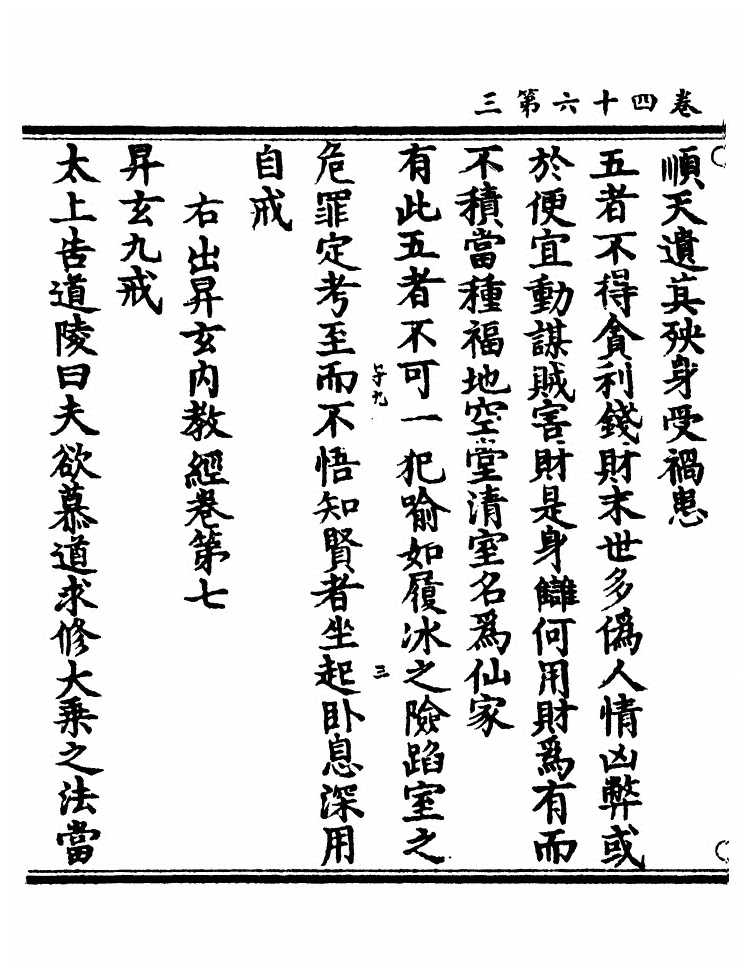 卷四十六第三
順天遺其殃身受禍患
五者不得貪利錢財末世多僞人情凶弊或
於便宜動謀賊害財是身讎何用財爲有而
不積當種福地空堂清室名爲仙家
有此五者不可一犯喻如履冰之險蹈室之
危罪定考至而不悟知賢者坐起臥息深用
自戒
右出昇玄內教經卷第七
昇玄九戒
太上告道陵曰夫欲慕道求修大乗之法當
三